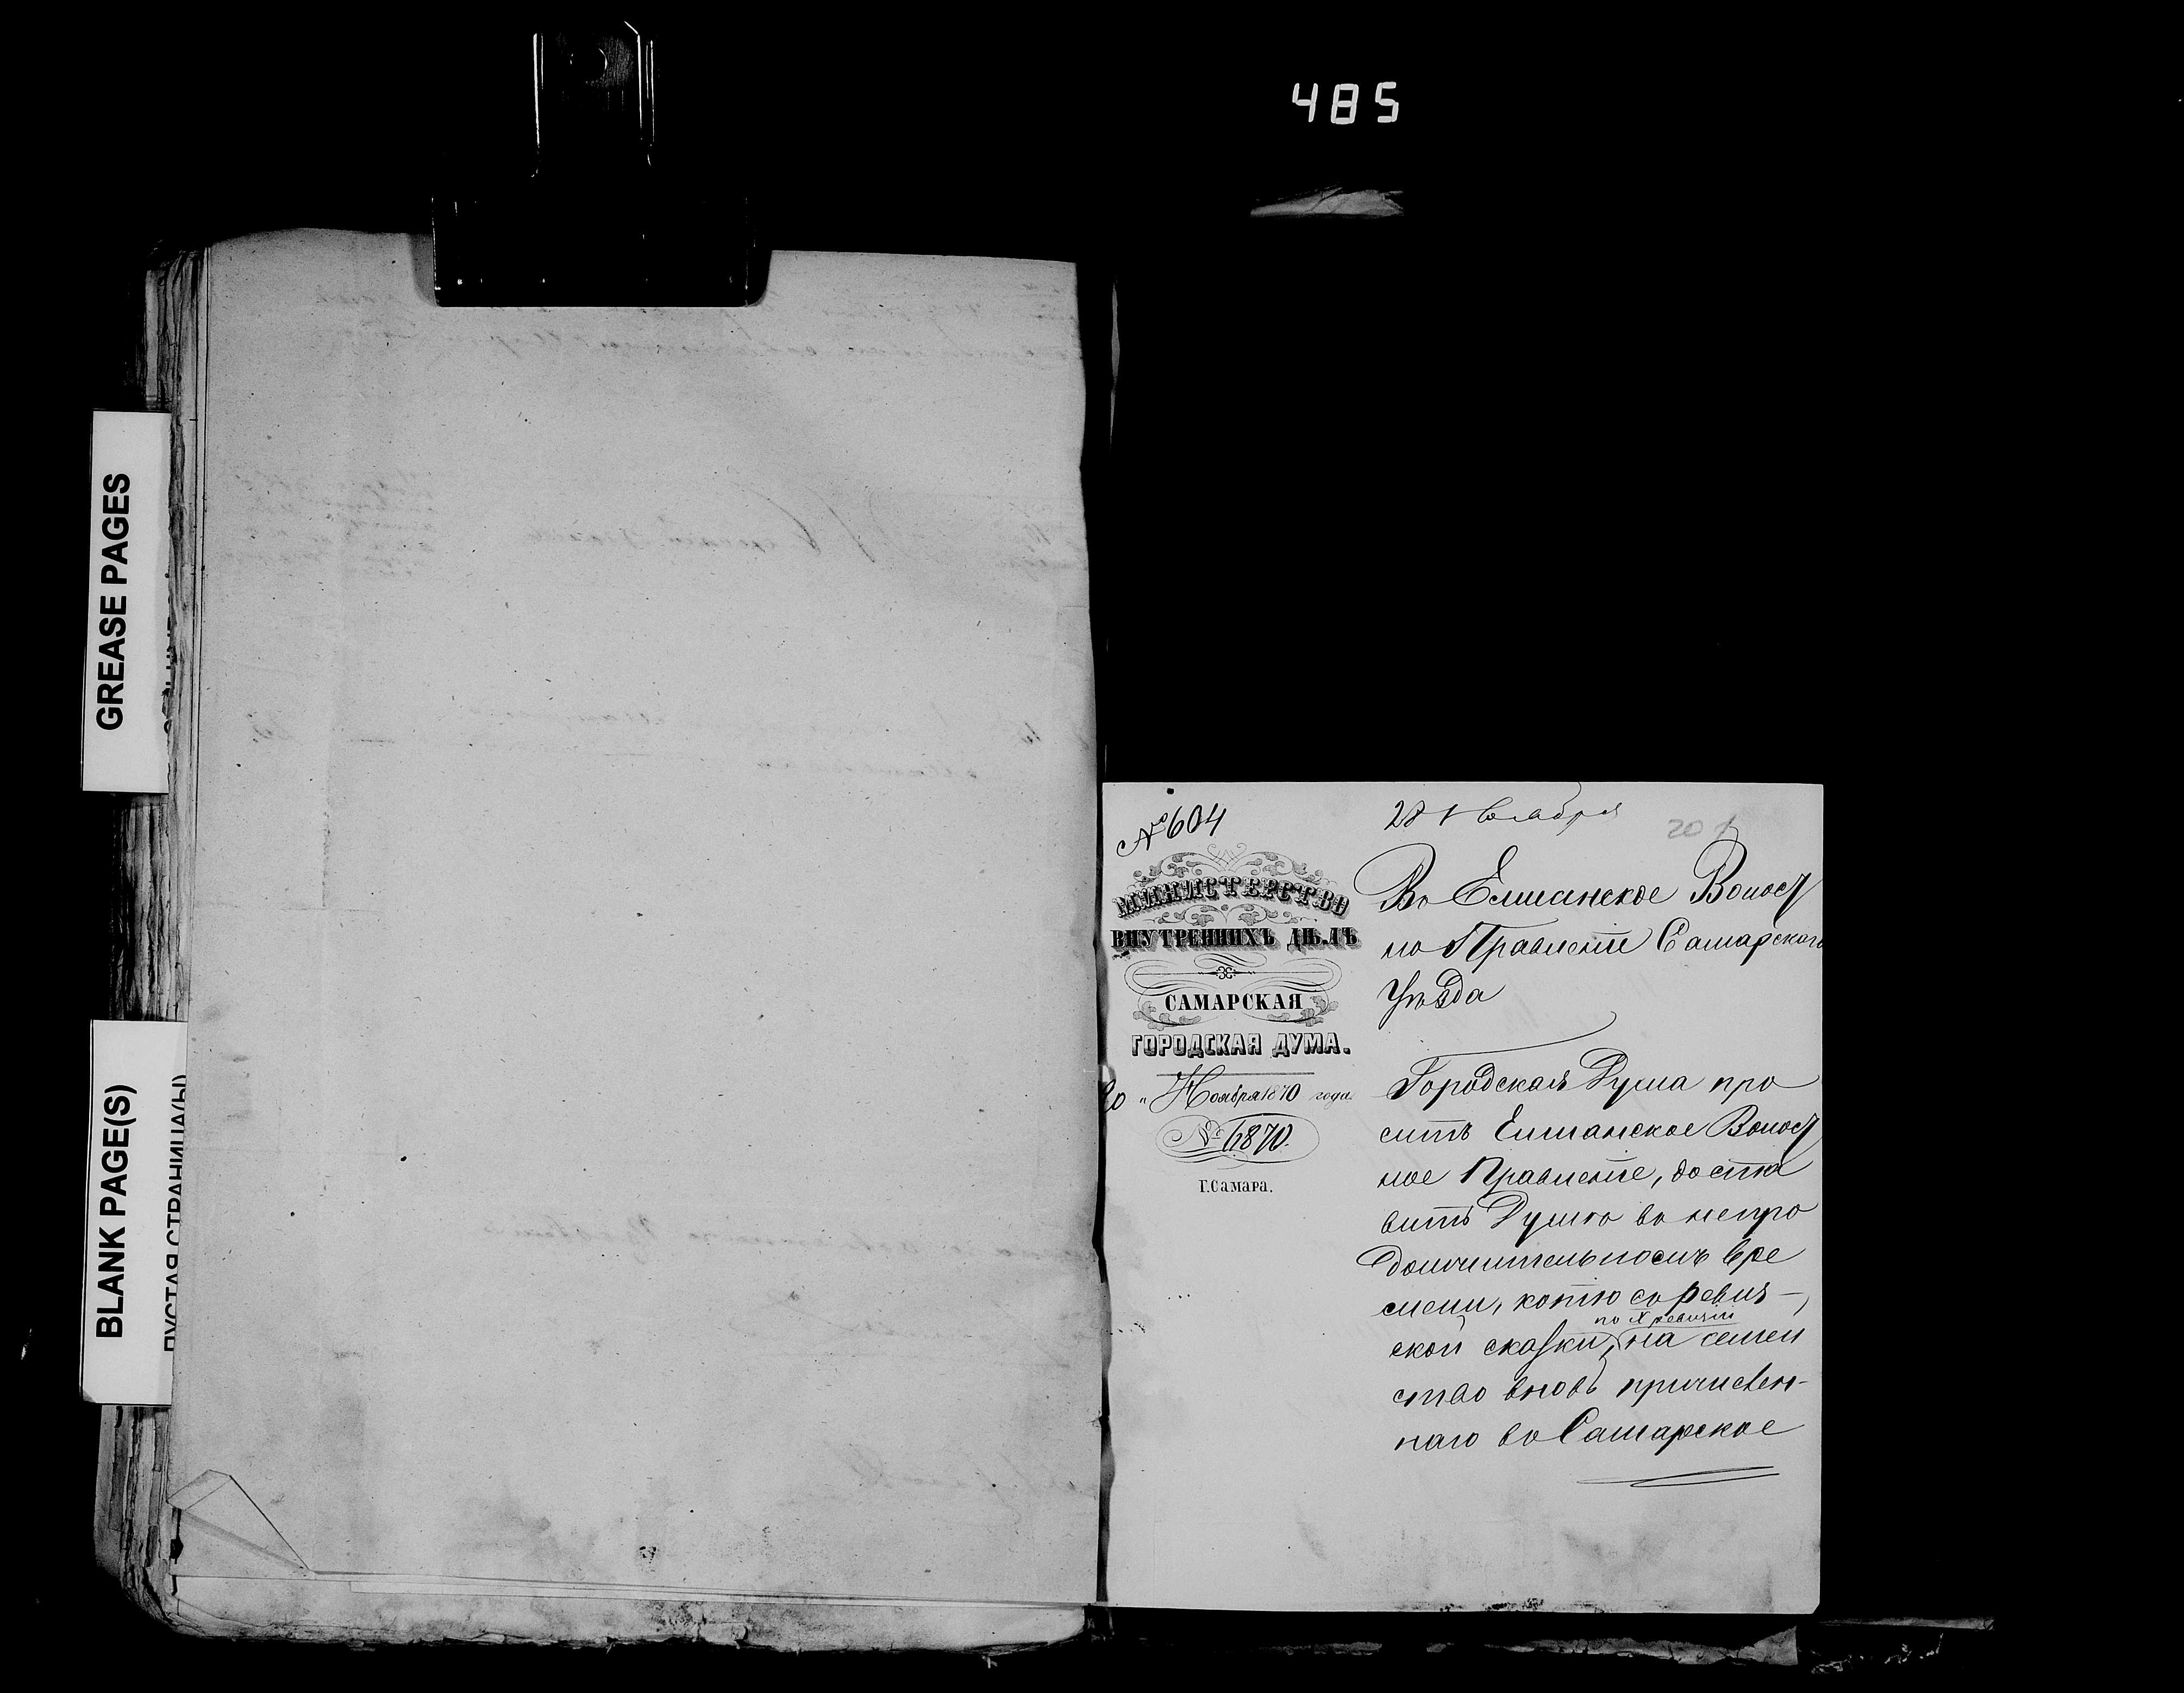 485
GREASE PAGES
BLANK PAGE(S)
ПУСТАЯ СТРАНИЦА(Ы)
№ 604
28 Ноября
МИНИСТЕРСТВО
ВНУТРЕННИХЪ ДѢЛЪ
САМАРСКАЯ
ГОРОДСКАЯ ДУМА.
20 „ Ноября 1870 года.
№ 6870.
Г. Самара.
Въ Елшанское Волост
но Правленіе Самарскаго
Уѣзда
Городская Дума про
ситъ Елшанское Волост
ное Правленіе, доста
вить Думѣ въ непро
должительномъ вре
мени, копію съ ревиз-
ской сказки, по X ревизіи на семей
ство вновь причислен-
наго въ Самарское